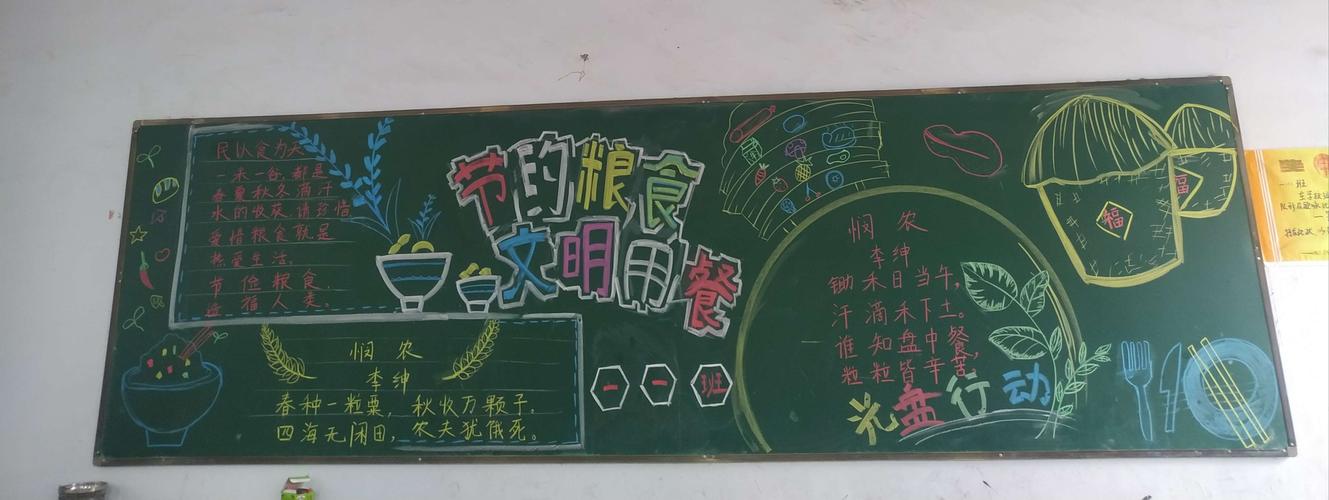 民以食为天
一米一谷,都是
春夏秋冬滴汗
水的收获,请珍惜
爱惜粮食就是
热爱生活。
节俭粮食,
造福人类。
悯农
李绅
春种一粒粟,秋收万颗子。
四海无闲田,农夫犹饿死。
节的粮食
文明用餐
一一班
悯农
李绅
锄禾日当午,
汗滴禾下土。
谁知盘中餐,
粒粒皆辛苦。
光盘行动
福
福
一·一班